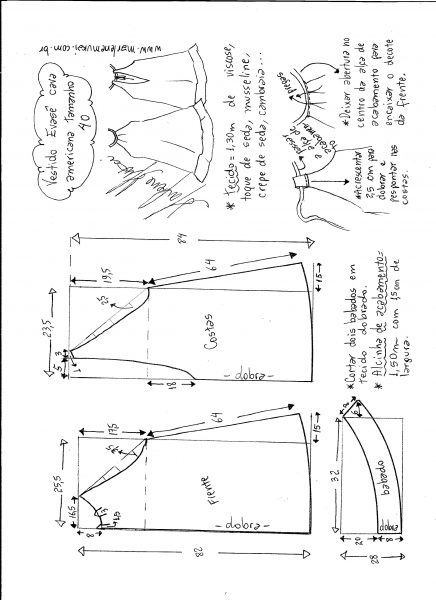 www.marlenemukai.com.br
Vestido Evasê cava
americana Tamanho
40
* Tecido = 1,30m de viscose,
toque de seda, musseline,
crepe de seda, cambraia...
pregas
*Deixar abertura no
centro da alça de
acabamento para
encaixar o decote
da frente.
*Acrescentar
2,5 cm para
dobrar e
pespontar nas
costas.
84
19,5
64
23,5
2,5
3
5
1
18
15
Costas
- dobra -
*Cortar dois babados em
tecido dobrado.
* Alcinha de acabamento=
1,50m com 1,5cm de
largura.
17,5
64
25,5
16,5
8
15
Frente
- dobra -
82
32
babado
dobra
20
8
28